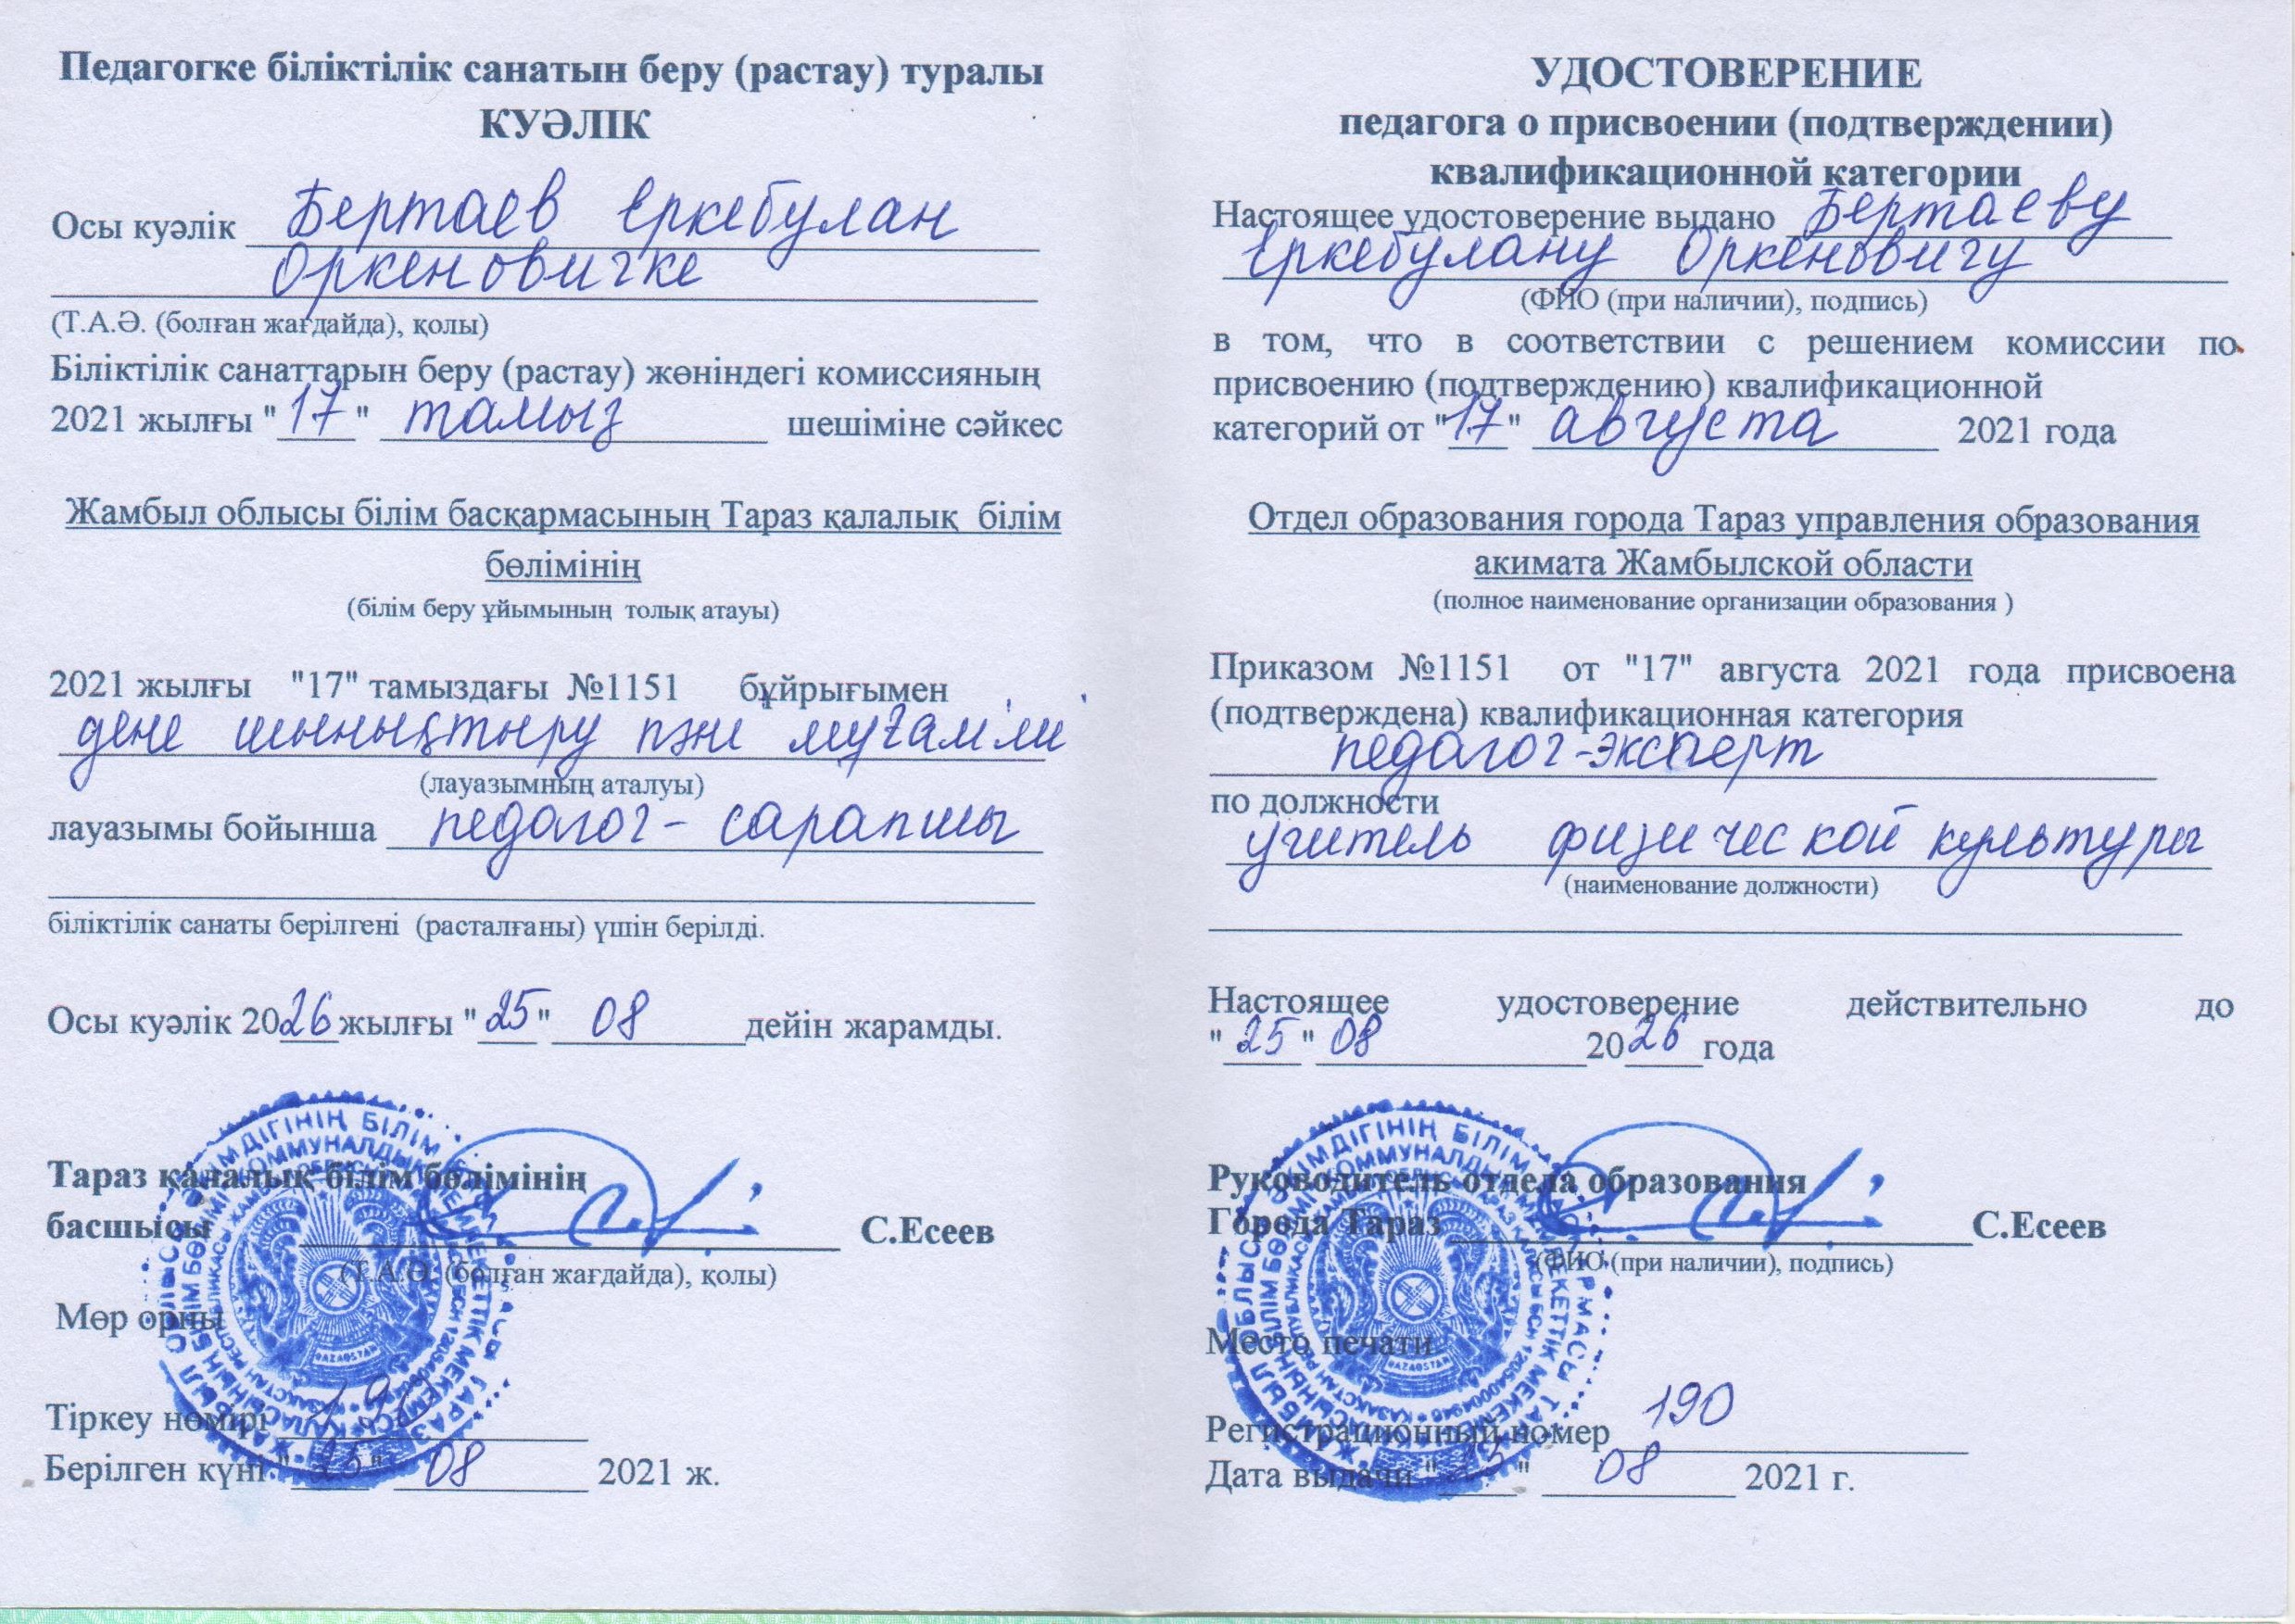 Педагогке біліктілік санатын беру (растау) туралы
КУӘЛІК
Осы куәлік Бертаев Еркебулан
Оркеновичке
(Т.А.Ә. (болған жағдайда), қолы)
Біліктілік санаттарын беру (растау) жөніндегі комиссияның
2021 жылғы "17" тамыз шешіміне сәйкес
Жамбыл облысы білім басқармасының Тараз қалалық білім
бөлімінің
(білім беру ұйымының толық атауы)
2021 жылғы "17" тамыздағы №1151 бұйрығымен
дене шынықтыру пәні мұғалімі
(лауазымның аталуы)
лауазымы бойынша педагог - сарапшы
біліктілік санаты берілгені (расталғаны) үшін берілді.
Осы куәлік 2026 жылғы "25" 08 дейін жарамды.
Тараз қалалық білім бөлімінің
басшысы С.Есеев
(Т.А.Ә. (болған жағдайда), қолы)
Мөр орны
Тіркеу нөмірі 190
Берілген күні "25" 08 2021 ж.
УДОСТОВЕРЕНИЕ
педагога о присвоении (подтверждении)
квалификационной категории
Настоящее удостоверение выдано Бертаеву
Еркебулану Оркеновичу
(ФИО (при наличии), подпись)
в том, что в соответствии с решением комиссии по
присвоению (подтверждению) квалификационной
категорий от "17" августа 2021 года
Отдел образования города Тараз управления образования
акимата Жамбылской области
(полное наименование организации образования )
Приказом №1151 от "17" августа 2021 года присвоена
(подтверждена) квалификационная категория
педагог-эксперт
по должности
учитель физической культуры
(наименование должности)
Настоящее удостоверение действительно до
"25" 08 2026 года
Руководитель отдела образования
Города Тараз С.Есеев
(ФИО (при наличии), подпись)
Место печати
Регистрационный номер 190
Дата выдачи "25" 08 2021 г.